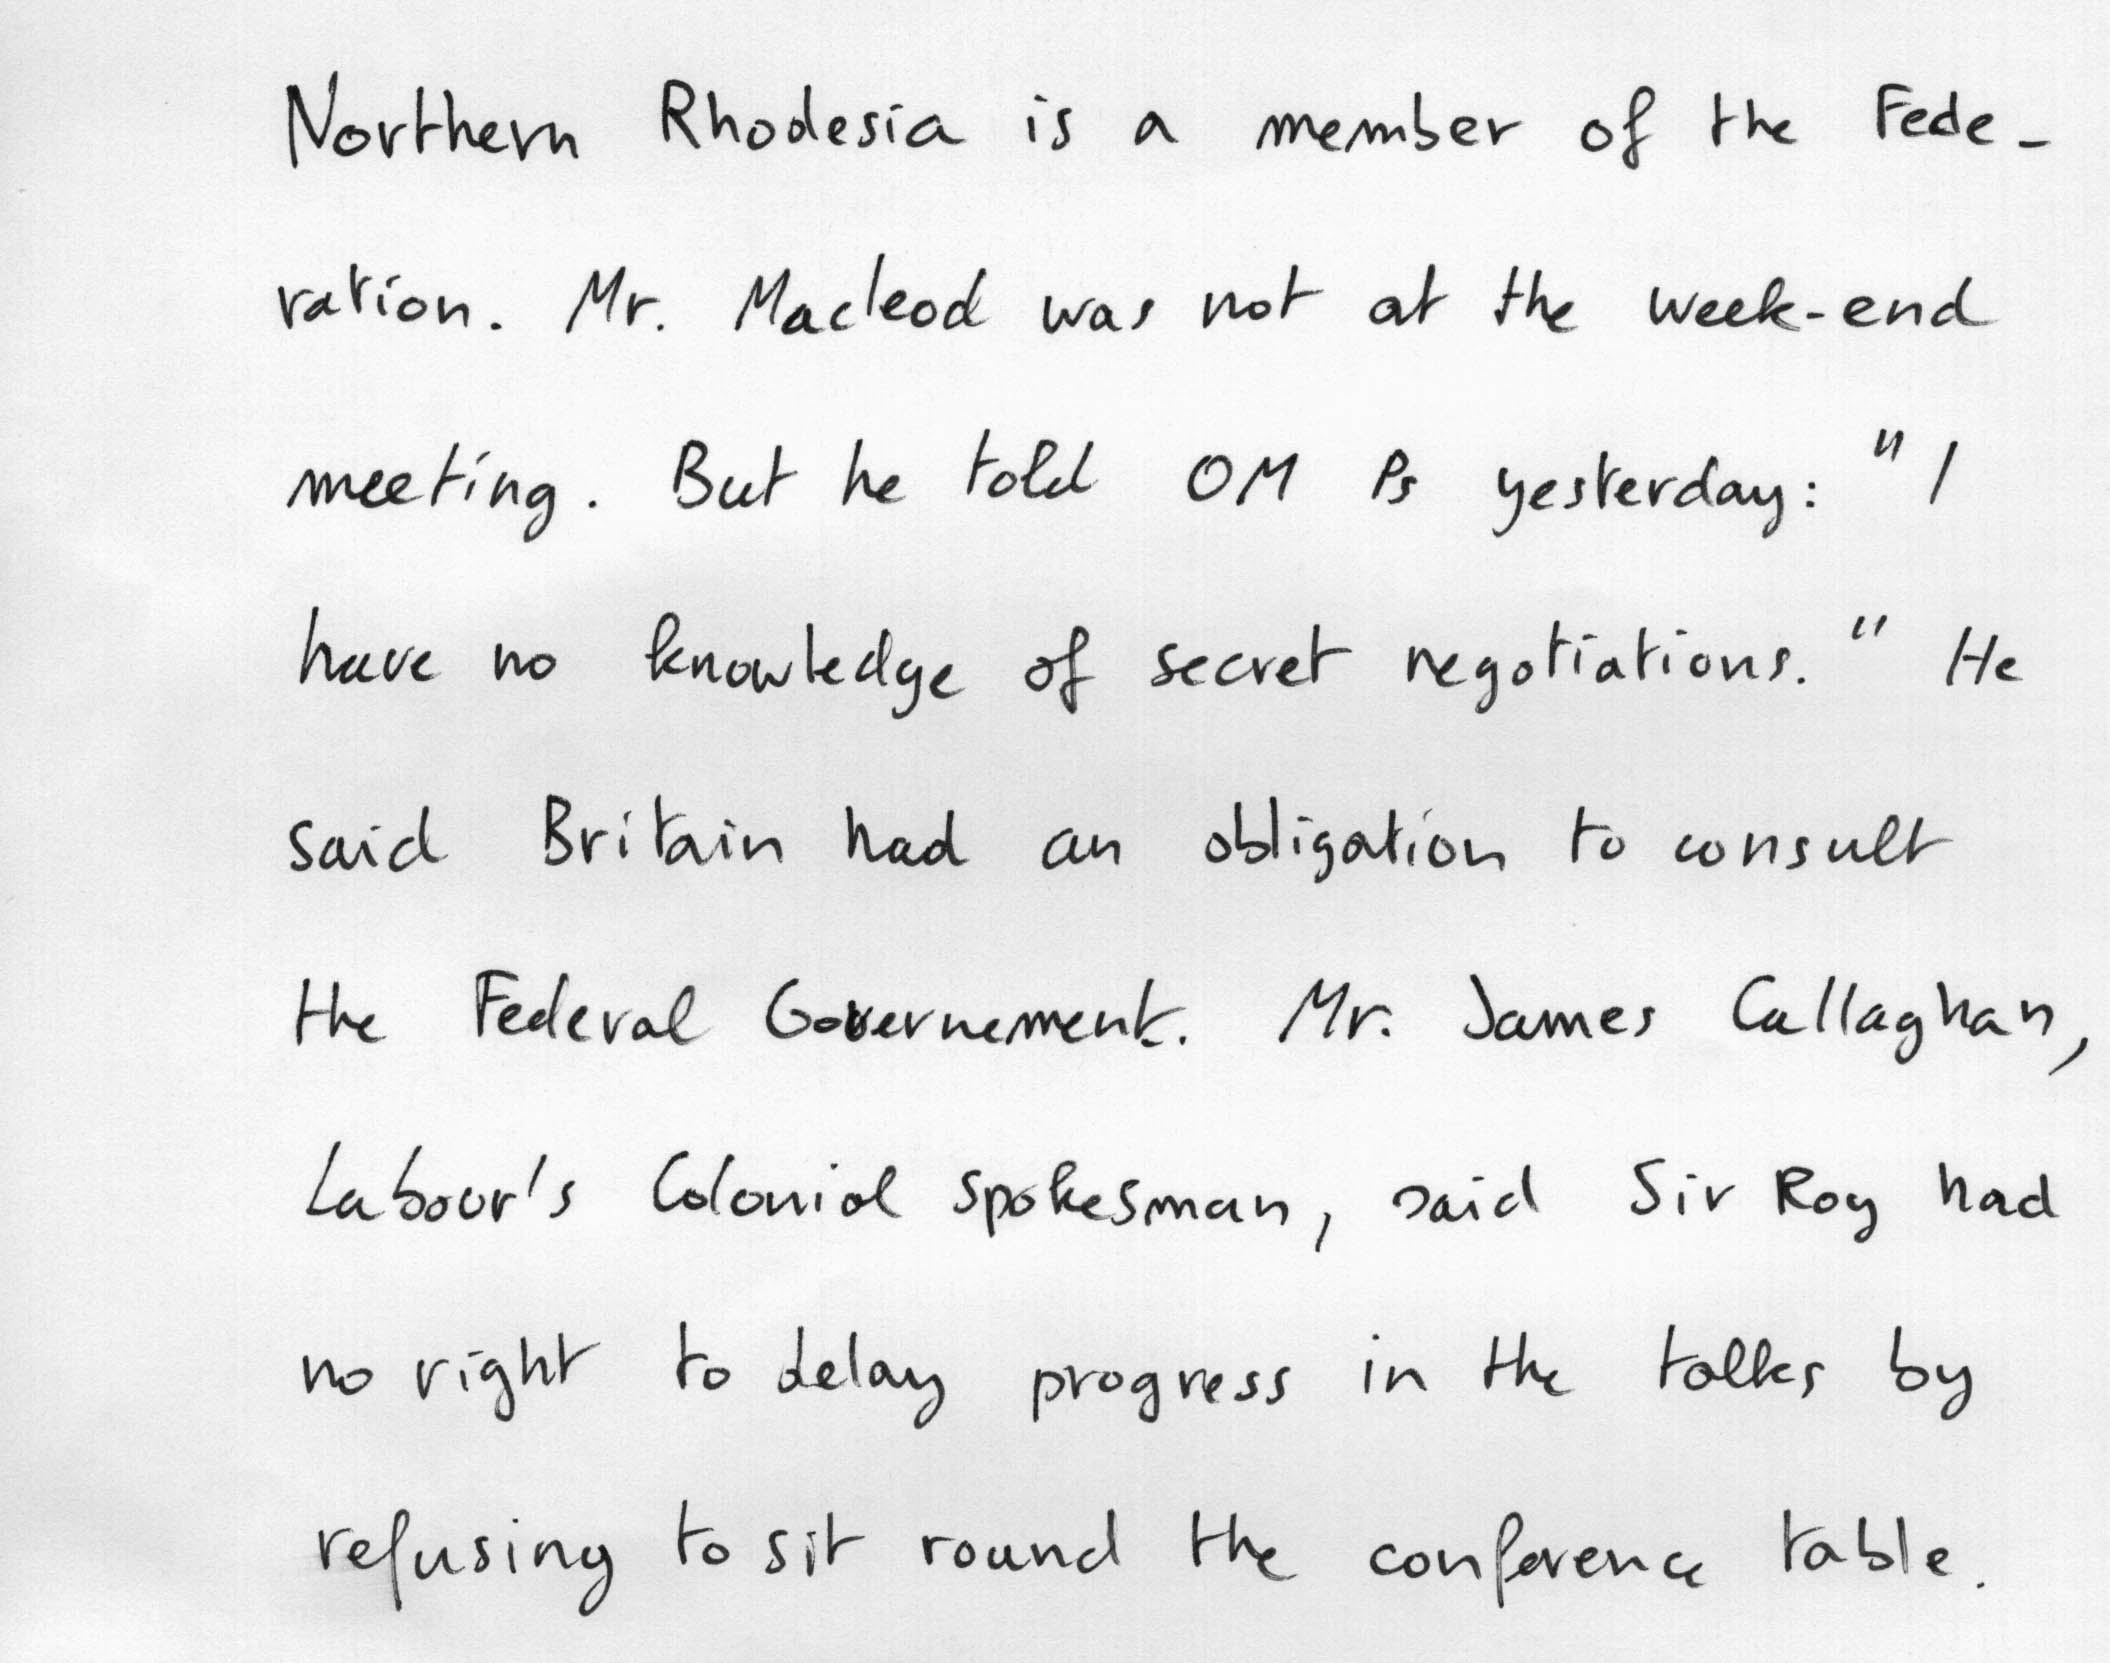 Northern Rhodesia is a member of the Fede-
ration. Mr. Macleod was not at the week-end
meeting. But he told OM Ps yesterday: " I
have no knowledge of secret negotiations. " He
said Britain had an obligation to consult
the Federal Governement. Mr. James Callaghan,
Labour's Colonial spokesman, said Sir Roy had
no right to delay progress in the talks by
refusing to sit round the conference table.